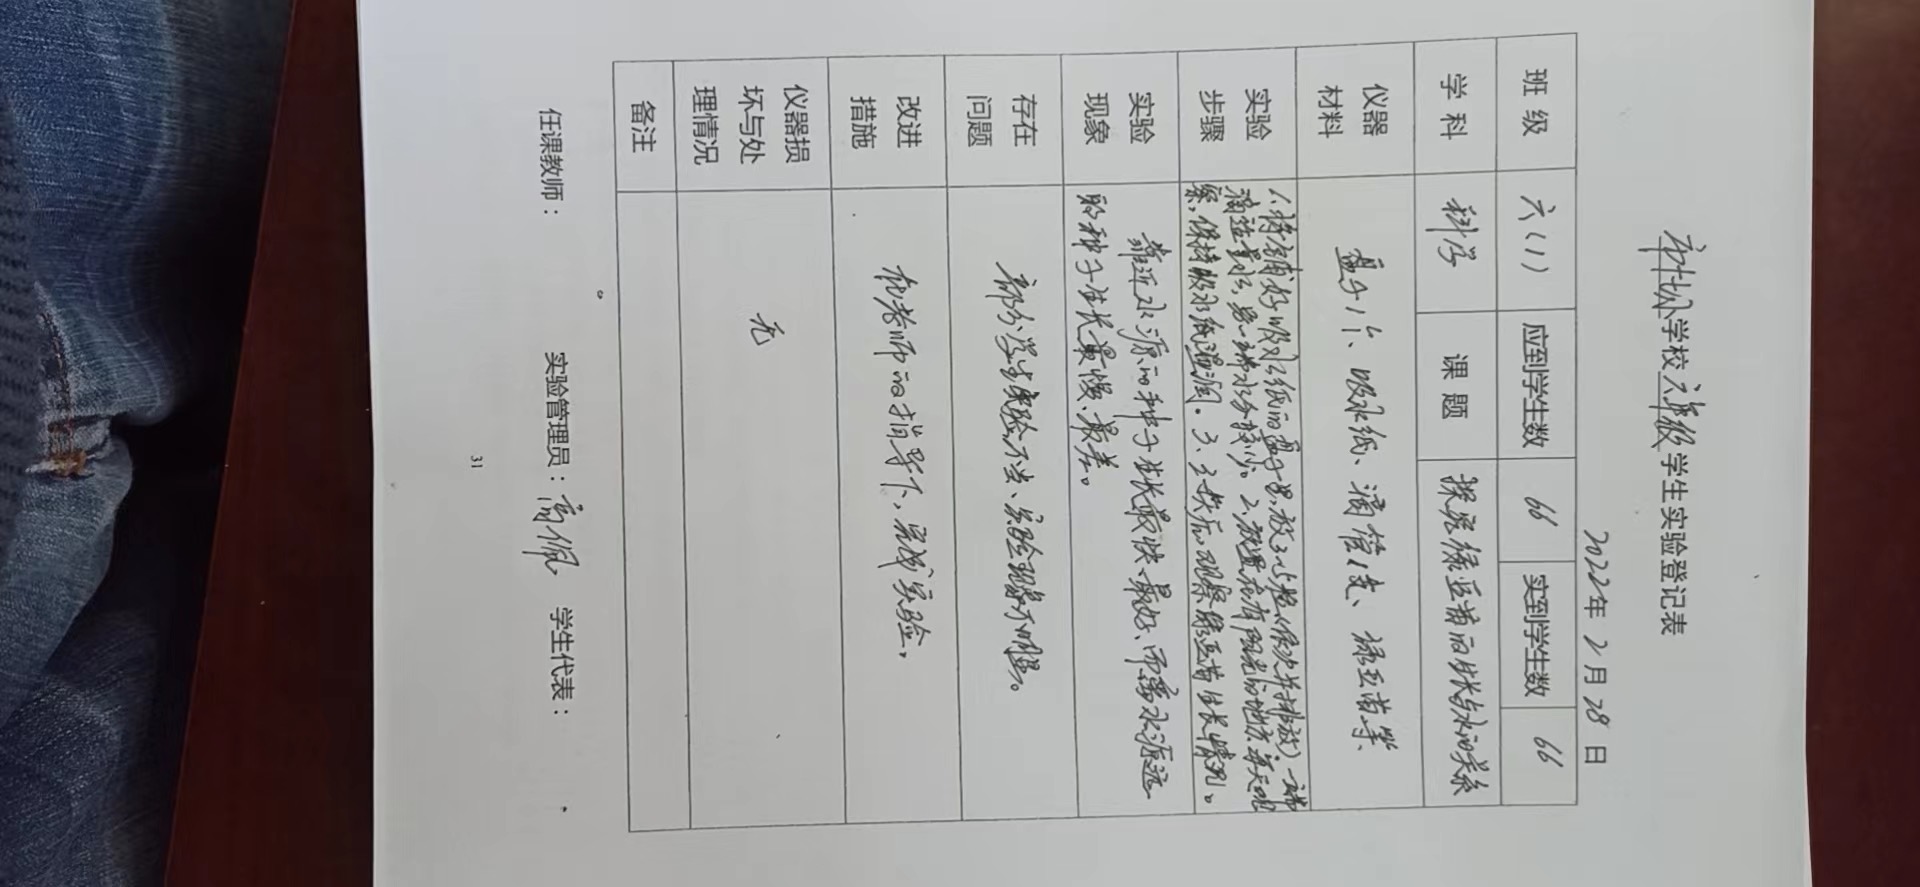 学校六年级学生实验登记表
2022年2月28日
班级 六(1) 应到学生数 66 实到学生数 66
学科 科学 课题 探究绿豆苗的生长与水的关系
仪器
材料
盘子1个、吸水纸、滴管1支、绿豆苗等、
实验
步骤
1.将铺好吸水纸的盘子里,放 (依次并排放)一端
滴适量水,另一端水分较少。2.放置在有阳光的地方,每天观
察,保持吸水纸湿润。3、 天后,观察绿豆苗生长情况。
实验
现象
靠近水源的种子生长最快、最好、而离水源远
的种子生长最慢、最差。
存在
问题
部分学生实验不当、实验现象不明显。
改进
措施
在老师的指导下,完成实验。
仪器损
坏与处
理情况
无
备注
任课教师: 实验管理员:高佩 学生代表:
31